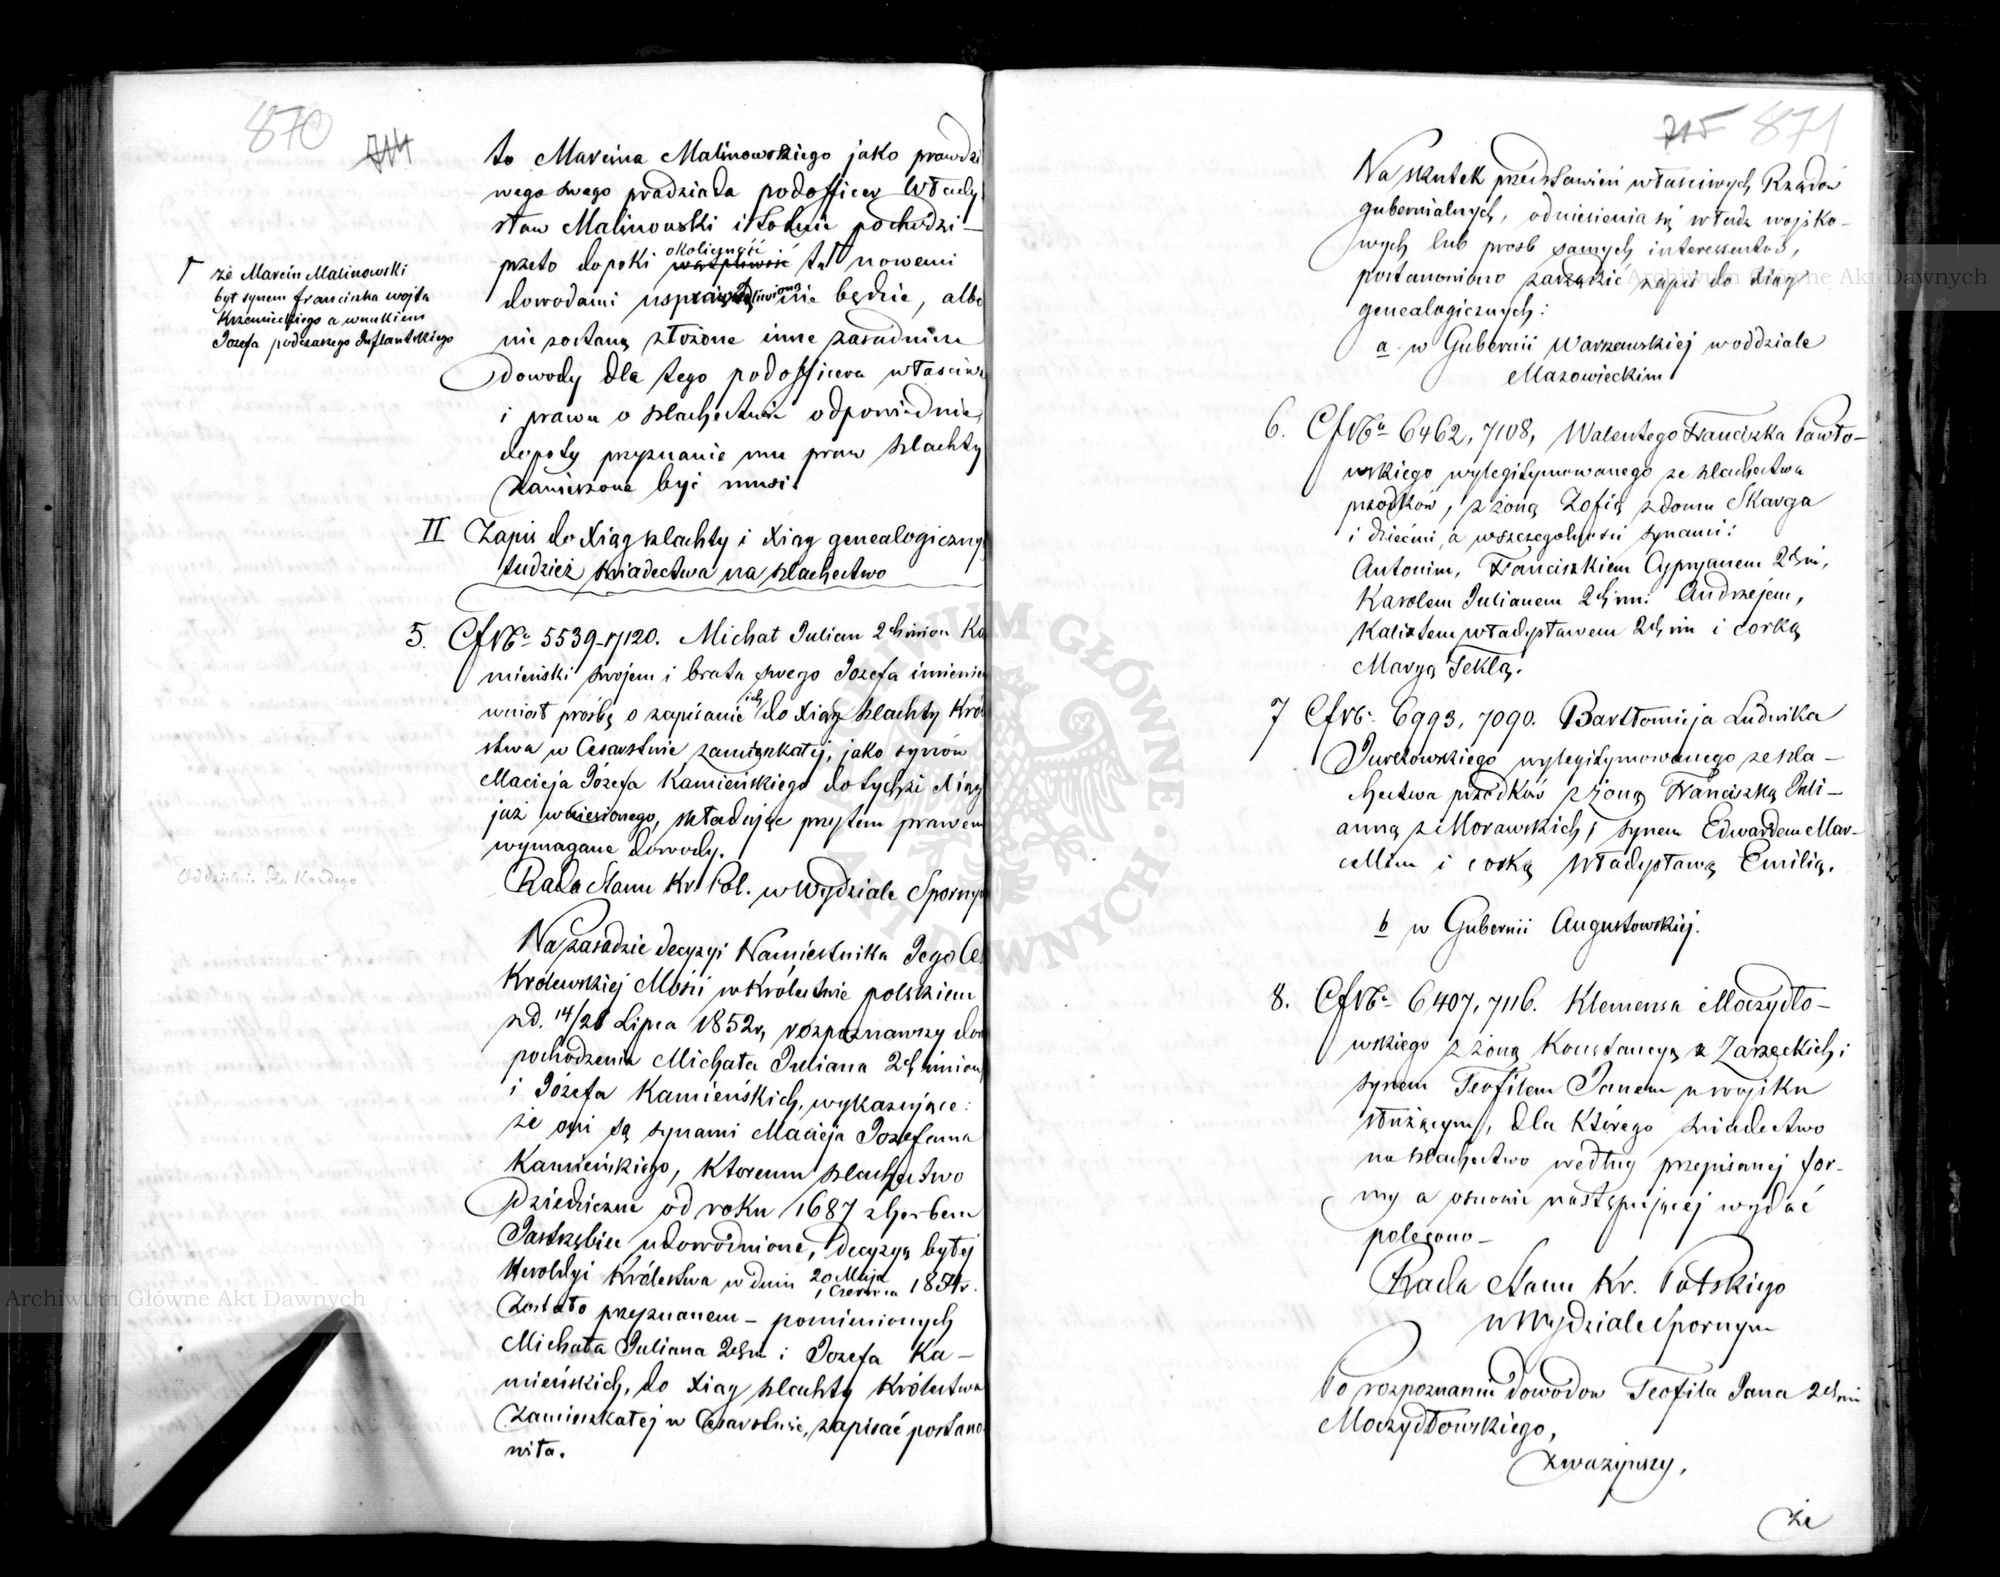 870 714
to Marcina Malinowskiego jako prawdzi
wego swego pradziada podofficer Włady
sław Malinowski istotnie pochodzi —
przeto dopóki okoliczność wątpliwość ta nowemi
dowodami usprawiedliwioną nie będzie, albo
nie zostaną złożone inne zasadnicze
dowody dla tego podofficera właściwe
i prawu o szlachectwie odpowiednie,
dopoty przyznanie mu praw szlachty
zawieszone być musi.
Γ że Marcin Malinowski
był synem Franciszka wojta
Krzemieckiego a wnukiem
Jozefa podczaszego Inflantskiego
II Zapis do Xiąg szlachty i Xiąg genealogiczny
tudzież świadectwa na szlachectwo
5. Cf Nr 5539-7120. Michał Julian 2ch imion Ka
mieński swojem i brata swego Jozefa imieniem
wniosł prośbę o zapisanie ich do Xiąg szlachty Kró
stwa w Cesarstwie zamieszkałej, jako synów
Macieja Józefa Kamieńskiego do tychże Xiąg
już wniesionego, składając przytem prawem
wymagane dowody.
Rada Stanu Kr. Pol. w Wydziale Sporny
Oddzielnie dla każdego
Na zasadzie decyzyi Namiestnika Jego Ce
Królewskiej Mości w Królestwie polskiem
z d. 14/26 Lipca 1852 r, rozpoznawszy dow
pochodzenia Michała Juliana 2ch imion
i Józefa Kamieńskich, wykazujące:
że oni są synami Macieja Jozefa
Kamieńskiego, ktoremu szlachectwo
dziedziczne od roku 1687 z herbem
Jastrzębiec udowodnione, decyzyą byłej
Heroldyi Królestwa w dniu 20 Maja / 1 Czerwca 1854 r.
zostało przyznanem — pomienionych
Michała Juliana 2ch im i Jozefa Ka —
mieńskich, do Xiąg szlachty Królestwa
zamieszkałej w Cesarstwie, zapisać postano
wiła.
715 871
Na skutek przedstawień właściwych Rządów
gubernialnych, odniesienia się władz wojsko —
wych lub prosb samych interessentów,
postanowiono zarządzić zapis do Xiąg
genealogicznych:
a w Gubernii Warszawskiej w oddziale
Mazowieckim
6. Cf Nr 6462, 7108, Walentego Franciszka Pawło —
wskiego wylegitymowanego ze szlachectwa
przodków, z żoną Zofią z domu Skarga
i dziećmi, a w szczególności synami:
Antonim, Franciszkiem Cypryanem 2ch im,
Karolem Julianem 2ch im: Andrzejem,
Kalixtem Władysławem 2ch im i corką
Maryą Teklą.
7 Cf Nr 6993, 7090. Bartłomieja Ludwika
Jureżowskiego wylegitymowanego ze szla —
chectwa przodków z żoną Franciszką Juli —
anną z Morawskich, synem Edwardem Mar —
cellim i corką Władysławą Emilią.
b w Gubernii Augustowskiej.
8. Cf Nr 6407, 7116. Klemensa Moczydło —
wskiego z żoną Konstancyą z Zarzeckich i
synem Teofilem Janem w wojsku
służącym, dla którego świadectwo
na szlachectwo według przepisanej for —
my a osnowie następującej wydać
polecono —
Rada Stanu Kr. Polskiego
w Wydziale Spornym
Po rozpoznaniu dowodow Teofila Jana 2ch im
Moczydłowskiego,
zważywszy,
że
Archiwum Główne Akt Dawnych
Archiwum Główne Akt Dawnych
ARCHIWUM GŁÓWNE AKT DAWNYCH